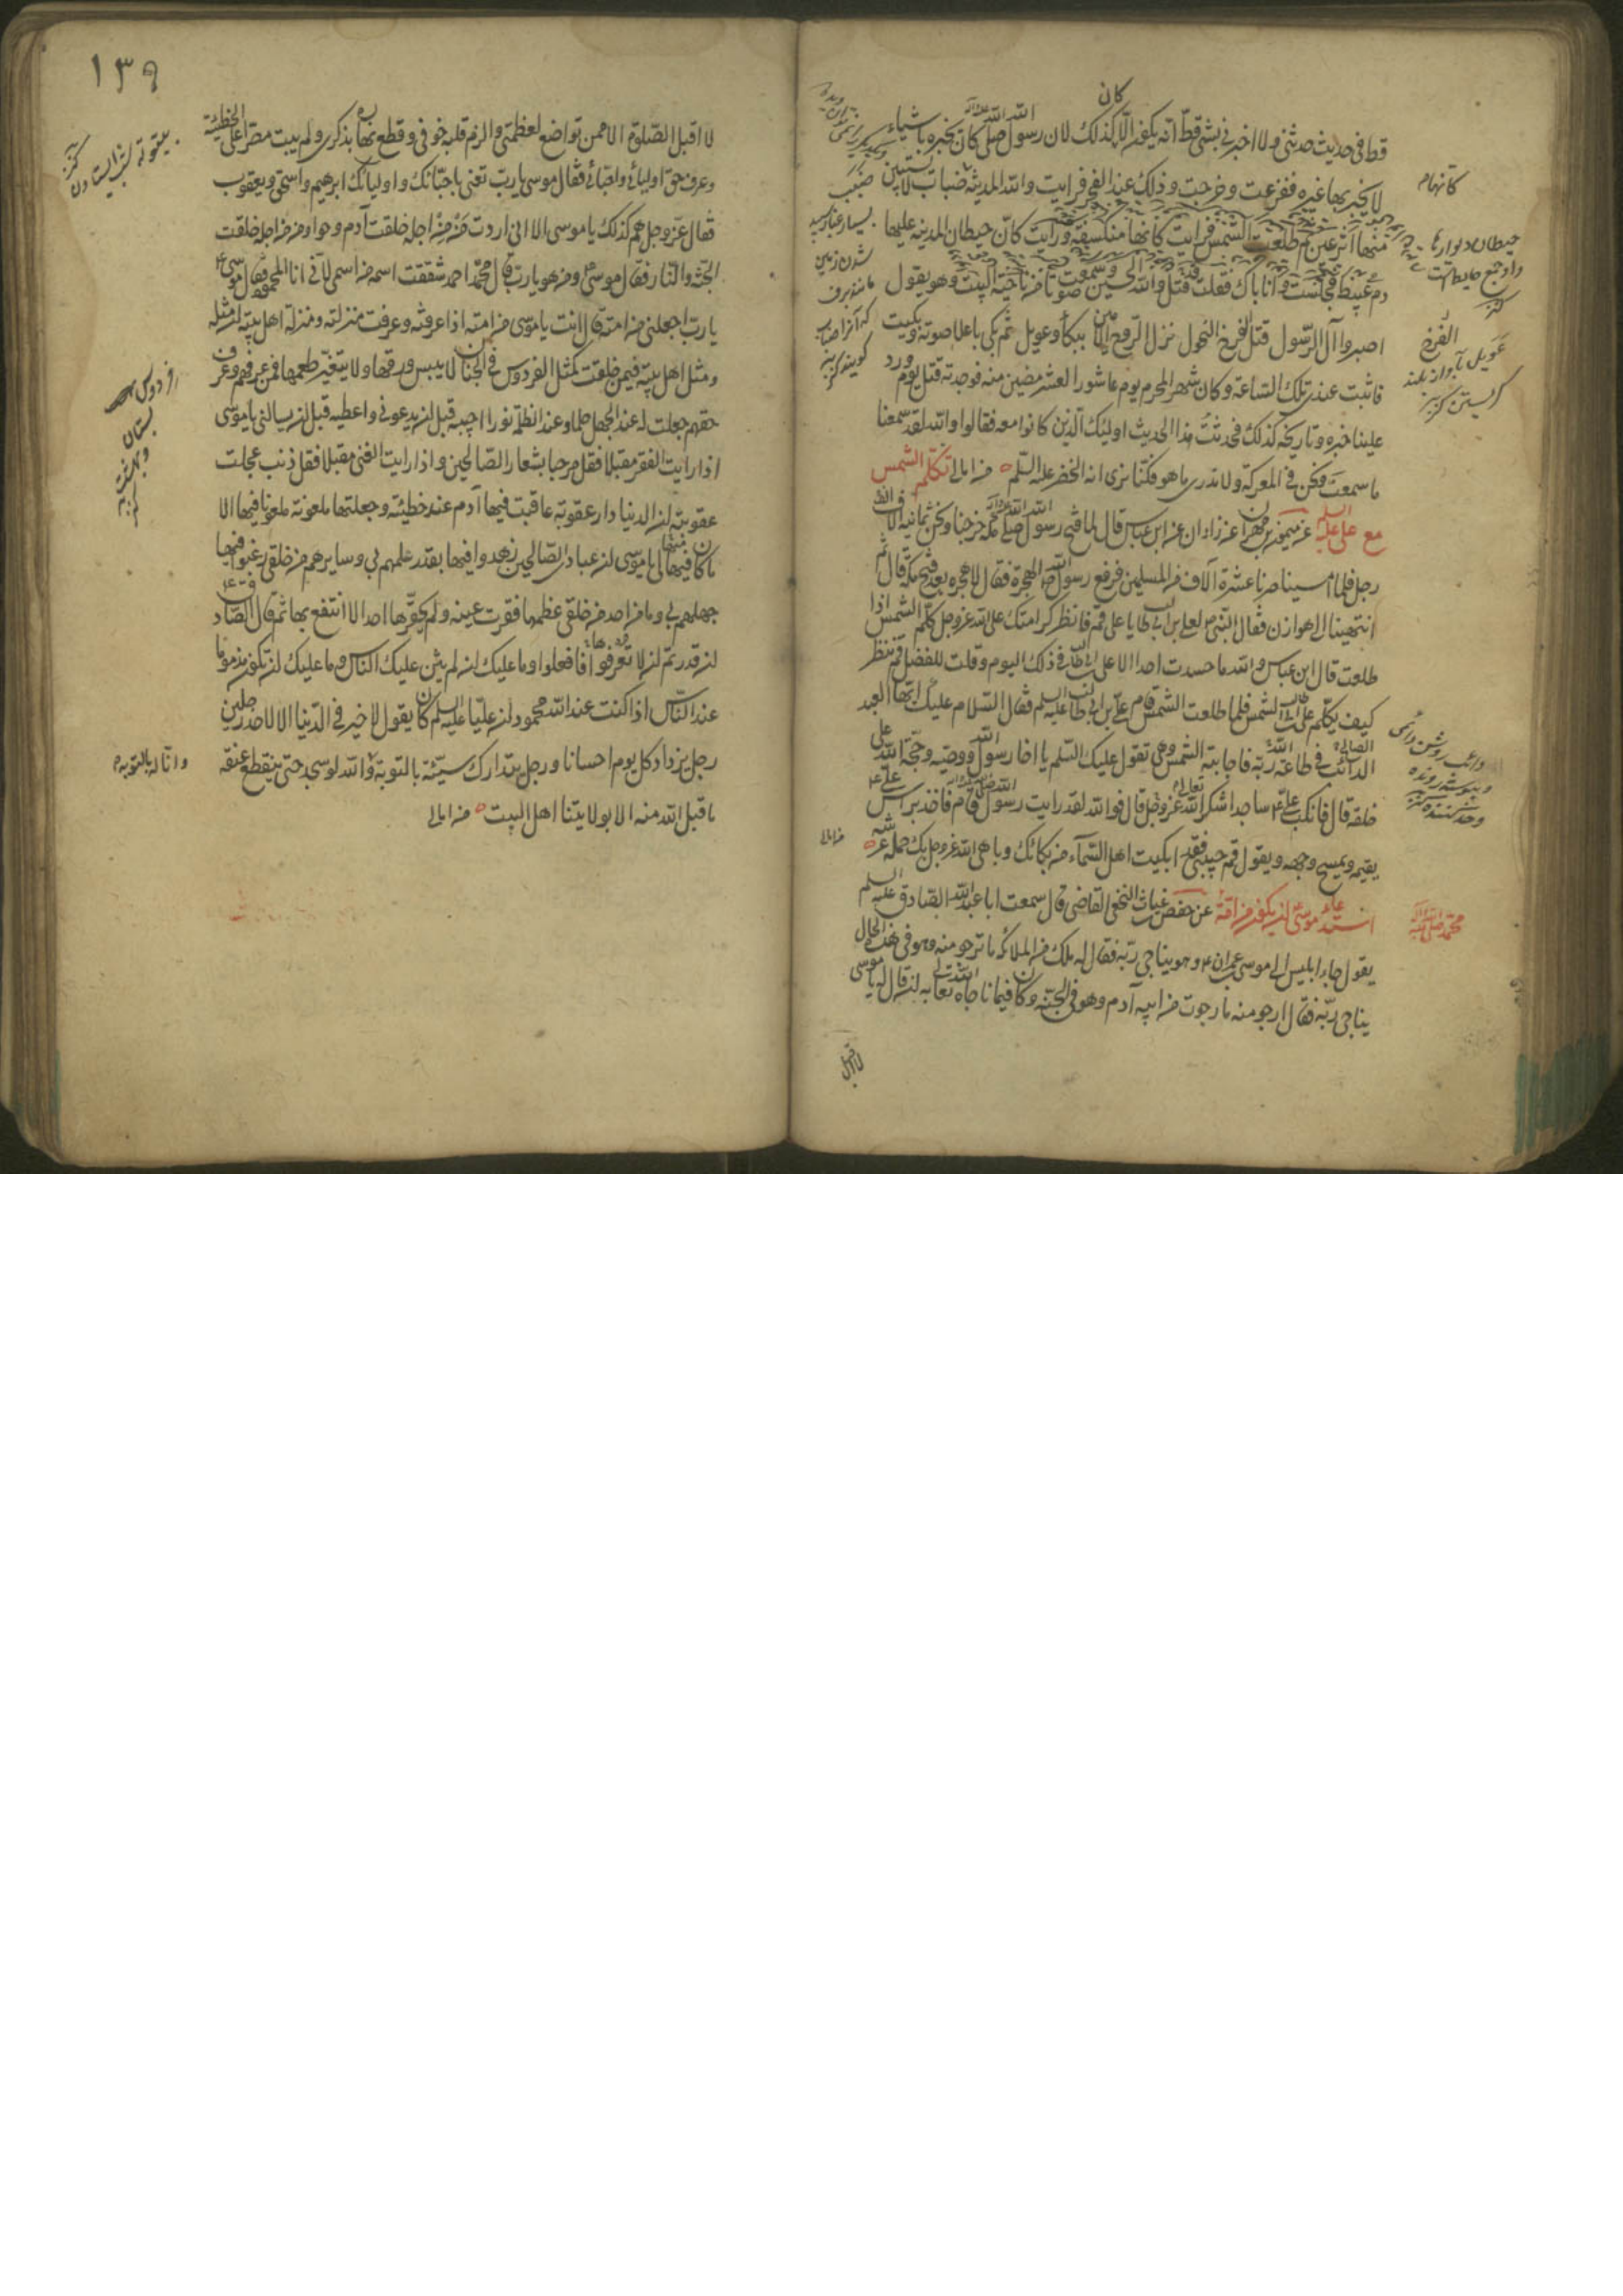 كان
قط فى حديث حدثنى ولا اخبرنى بشئ قط انه يكون الا كذلك لان رسول الله صلى الله عليه وآله كان يخبره باشياء
لا يخبر بها غيره ففزعت وخرجت وذلك عند الفجر فرايت والله المدينة ضباب لا يستبين
منها اثر عين ثم طلعت الشمس فرايت كانها منكسفة ورايت كان حيطان المدينة عليها
دم عبيط فجلست وانا باك فقلت قد قتل والله الحسين وسمعت صوتا من ناحية البيت وهو يقول
اصبروا آل الرسول قتل الفرخ النحول نزل الروح الامين ببكاء وعويل ثم بكى باعلا صوته وبكيت
فاثبت عندى تلك الساعة وكان شهر المحرم يوم عاشورا لعشر مضين منه فوجدته قتل يوم ورد
علينا خبره وتاريخه كذلك فحدثت هذا الحديث اولئك الذين كانوا معه فقالوا والله لقد سمعنا
ما سمعت ونحن فى المعركة ولا ندرى ما هو فكنا نرى انه الخضر عليه السلم من امالى تكلم الشمس
مع على عليه السلم عن ميمون بن مهران عن زاذان عن ابن عباس قال لما فتح رسول الله صلى الله عليه وآله مكة خرجنا ونحن ثمانية الاف
رجل فلما امسينا صرنا عشرة آلاف من المسلمين فرفع رسول الله الهجرة فقال لا هجرة بعد فتح مكة قال ثم
انتهينا الى هوازن فقال النبى لعلى بن ابى طالب يا على قم فانظر كرامتك على الله عز وجل كلم الشمس اذا
طلعت قال ابن عباس والله ما حسدت احدا الا على بن ابى طالب فى ذلك اليوم وقلت للفضل قم ننظر
كيف يكلم على بن ابى طالب الشمس فلما طلعت الشمس قام على بن ابى طالب عليه السلم فقال السلام عليك ايها العبد
الصالح الدائب فى طاعة الله ربه فاجابته الشمس وهى تقول عليك السلم يا اخا رسول الله ووصيه وحجة الله على
خلقه قال فانكب على ساجدا شكرا لله تعالى عز وجل قال فوالله لقد رايت رسول الله صلى الله عليه وآله قام فاخذ براس على
يقيمه ويمسح وجهه ويقول قم حبيبى فقد ابكيت اهل السماء من بكائك وباهى الله عز وجل بك حملة عرشه
استدعاء موسى ان يكون من امة عن حفص بن غياث النخعى القاضى قال سمعت ابا عبد الله الصادق عليه السلم
يقول جاء ابليس الى موسى بن عمران وهو يناجى ربه فقال له ملك من الملائكة ما ترجو منه وهو فى هذه الحال
يناجى ربه فقال ارجو منه ما رجوت من ابيه آدم وهو فى الجنة وكان فيما ناجاه الله تعالى به ان قال له يا موسى
لا اقبل
كانهام
حيطان ديوارها
واو جمع حايط است
كنز
الفرخ
عويل آواز بلند
كريستن كنز
محمد صلى الله عليه وآله
من امالى
١٣٩
لا اقبل الصلوة الا ممن تواضع لعظمتى والزم قلبه خوفى وقطع نهاره بذكرى ولم يبت مصرا على الخطيئة
وعرف حق اوليائى واحبائى فقال موسى يا رب تعنى باحبائك واوليائك ابرهيم واسحق ويعقوب
فقال عز وجل هم كذلك يا موسى الا انى اردت من من اجله خلقت آدم وحوا ومن من اجله خلقت
الجنة والنار فقال موسى ومن هو يا رب قال محمد احمد شققت اسمه من اسمى لانى انا المحمود فقال موسى
يا رب اجعلنى من امته قال انت يا موسى من امته اذا عرفته وعرفت منزلته ومنزلة اهل بيته ان مثله
ومثل اهل بيته فيمن خلقت كمثل الفردوس فى الجنان لا ييبس ورقها ولا يتغير طعمها فمن عرفهم وعرف
حقهم جعلت له عند الجهل حلما وعند الظلمة نورا اجيبه قبل ان يدعونى واعطيه قبل ان يسالنى يا موسى
اذا رايت الفقر مقبلا فقل مرحبا بشعار الصالحين واذا رايت الغنى مقبلا فقل ذنب عجلت
عقوبته ان الدنيا دار عقوبة عاقبت فيها آدم عند خطيئته وجعلتها ملعونة ملعونا فيها الا
ما كان فيها لى يا موسى ان عبادى الصالحين زهدوا فيها بقدر علمهم بى وسايرهم من خلقى رغبوا فيها
بقدر جهلهم بى وما من احد من خلقى عظمها فقرت عينه ولم يحقرها احد الا انتفع بها ثم قال الصادق
ان قدرتم ان لا تعرفوا فافعلوا وما عليك ان لم يثن عليك الناس وما عليك ان تكون مذموما
عند الناس اذا كنت عند الله محمودا ان عليا عليه السلم كان يقول لا خير فى الدنيا الا لاحد رجلين
رجل يزداد كل يوم احسانا ورجل يتدارك سيئته بالتوبة والله لو سجد حتى ينقطع عنقه
ما قبل الله منه الا بولايتنا اهل البيت من امالى
بيتوتة
كنز
فردوس
بستان
وانى له بالتوبة